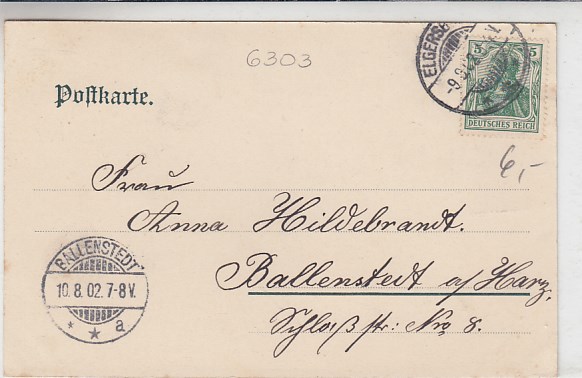 6303
Postkarte.
5 5
DEUTSCHES REICH
6,-
Frau
Anna Hildebrandt.
Ballenstedt a/Harz,
Schloßstr: Nro 8.
BALLENSTEDT
10.8.02.7-8V.
* * a